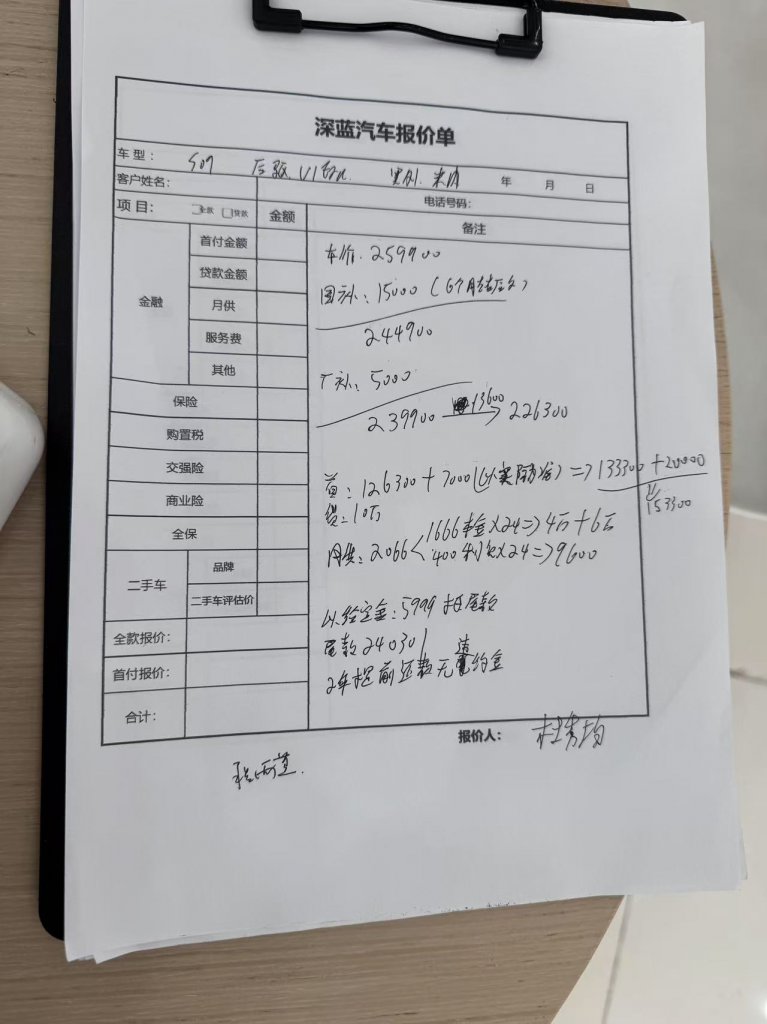 深蓝汽车报价单
车型： S09 后驱 U1 年 月 日
客户姓名： 电话号码：
项目： 全款 贷款 金额 备注
金融
首付金额
贷款金额
月供
服务费
其他
保险
购置税
交强险
商业险
全保
二手车
品牌
二手车评估价
全款报价：
首付报价：
合计：
车价：259900
国补：15000（6个月
244900
厂补：5000
239900 13600 → 226300
首：126300 + 7000（以实际为）=> 133300 + 20000
153300
贷：10万
月供：2066 < 1666本金×24 => 4万 + 6万
400利息×24 => 9600
以给定金：5999 抵尾款
尾款240301
2年提前还款无违约金
报价人：